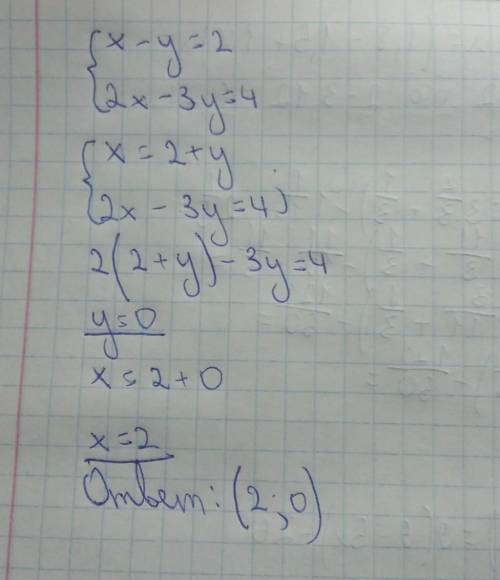 {x - y = 2
{2x - 3y = 4
{x = 2 + y
{2x - 3y = 4;
2(2 + y) - 3y = 4
y = 0
x = 2 + 0
x = 2
Ответ: (2; 0)